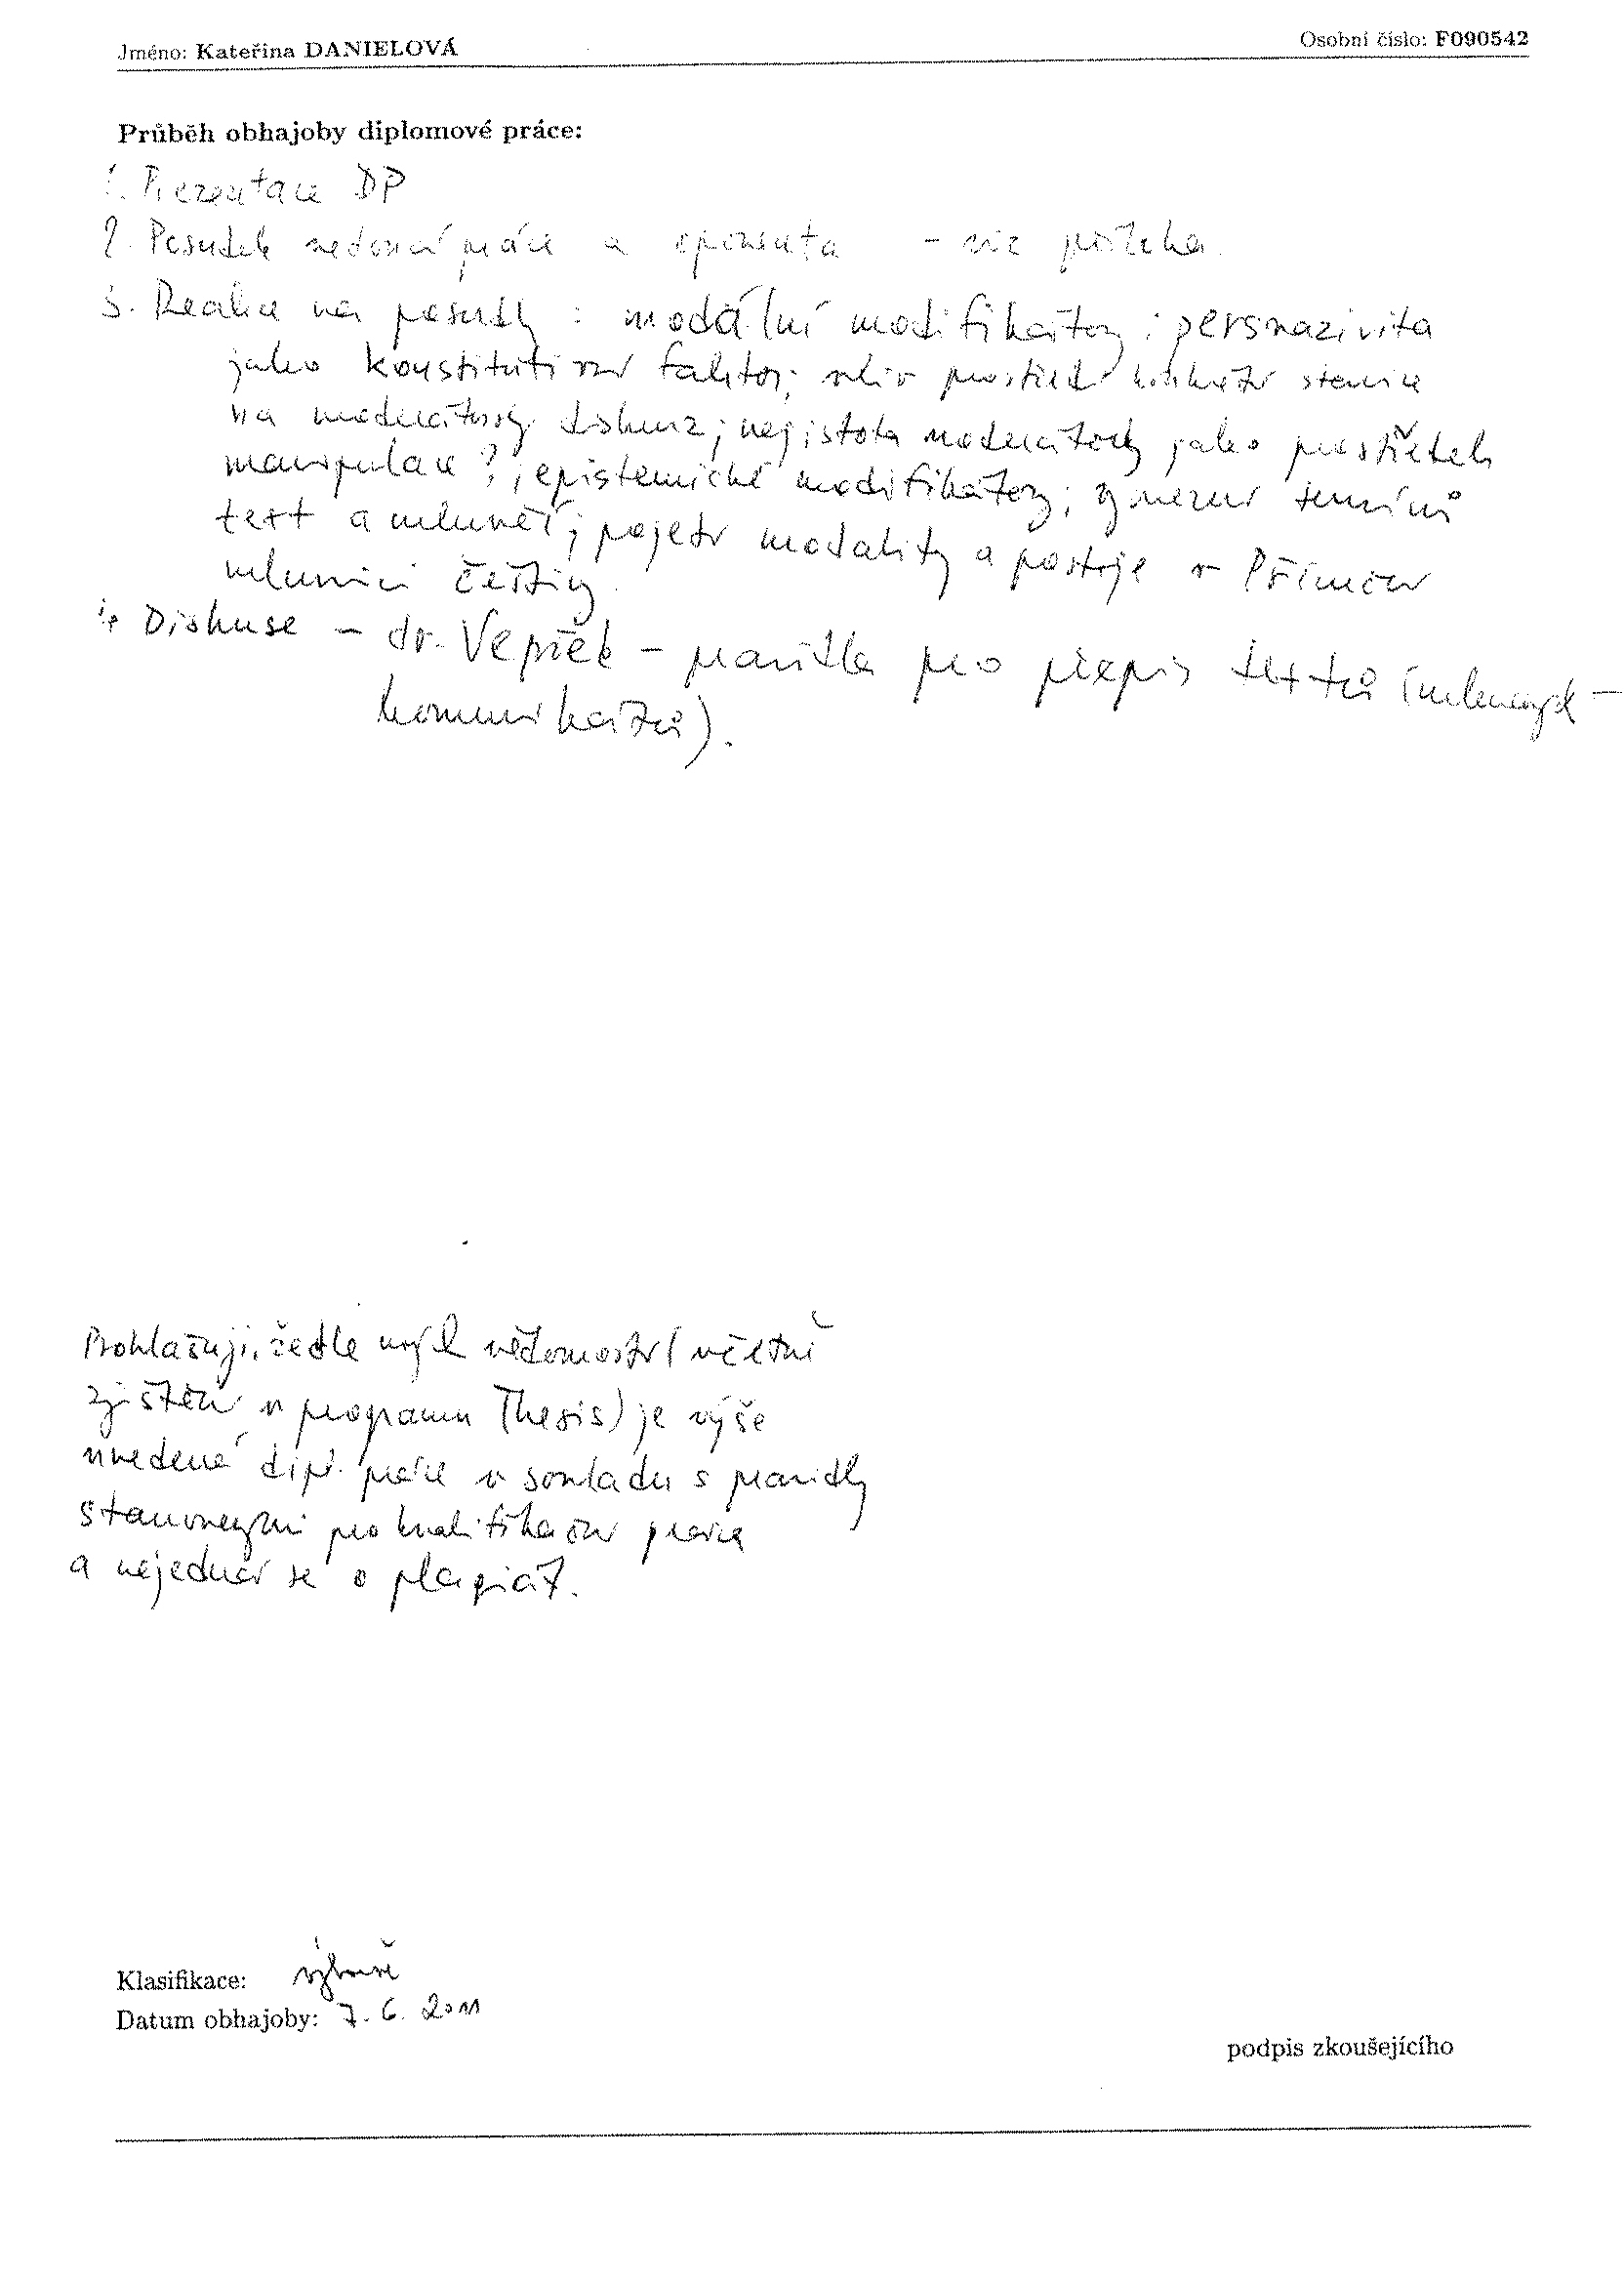 Jméno: Kateřina DANIELOVÁ
Osobní číslo: F090542
Průběh obhajoby diplomové práce:
1. Prezentace DP
2. Posudek vedoucí práce a oponenta – viz příloha.
3. Reakce na posudky: modální modifikátory; persvazivita
jako konstitutivní faktor; vliv prostředí konkrétní stanice
na moderátorský diskurz; nejistota moderátorky jako prostředek
manipulace?; epistemické modifikátory; vymezení termínů
text a mluvčí; pojetí modality a postoje v Příruční
mluvnici češtiny.
4. Diskuse – dr. Vepřek – pravidla pro přepis textů (mluvených
komunikátů).
Prohlašuji, že dle mých vědomostí (včetně
zjištění v programu Thesis) je výše
uvedená dipl. práce v souladu s pravidly
stanovenými pro kvalifikační práce
a nejedná se o plagiát.
Klasifikace: výborně
Datum obhajoby: 7. 6. 2011
podpis zkoušejícího